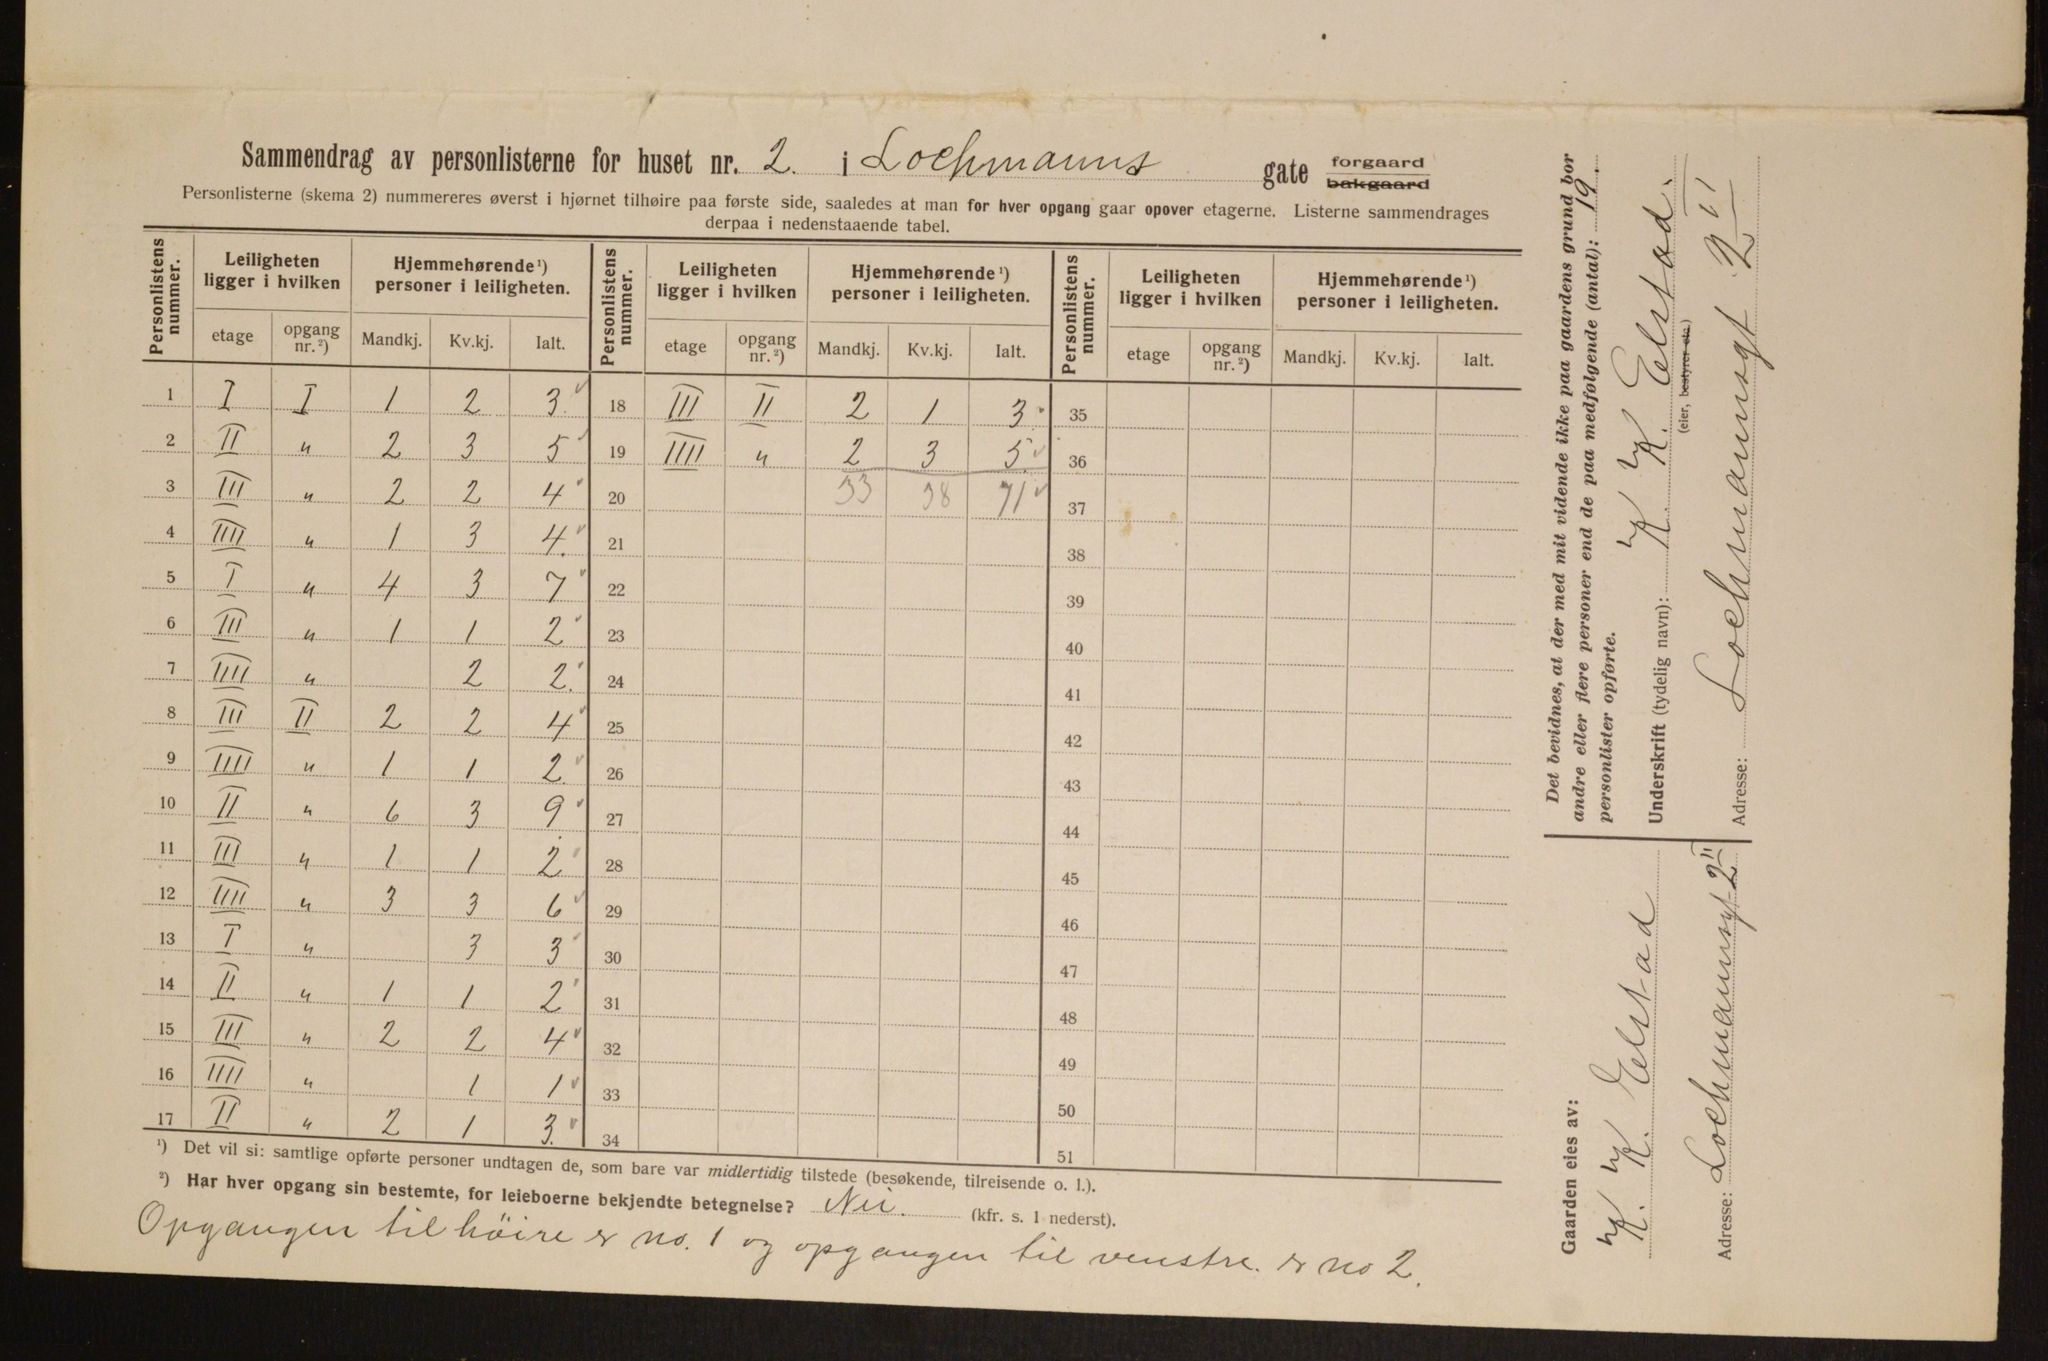 Sammendrag av personlisterne for huset nr. 2. i Lochmanns gate forgaard
bakgaard
Personlisterne (skema 2) nummereres øverst i hjørnet tilhøire paa første side, saaledes at man for hver opgang gaar opover etagerne. Listerne sammendrages
derpaa i nedenstaaende tabel.
Personlistens nummer. Leiligheten ligger i hvilken Hjemmehørende ¹) personer i leiligheten. Personlistens nummer. Leiligheten ligger i hvilken Hjemmehørende ¹) personer i leiligheten. Personlistens nummer. Leiligheten ligger i hvilken Hjemmehørende ¹) personer i leiligheten.
etage opgang nr. ²) Mandkj. Kv.kj. Ialt. etage opgang nr. ²) Mandkj. Kv.kj. Ialt. etage opgang nr. ²) Mandkj. Kv.kj. Ialt.
1 I I 1 2 3. 18 III II 2 1 3. 35
2 II " 2 3 5 19 IIII " 2 3 5. 36
3 III " 2 2 4 20 33 38 71 37
4 IIII " 1 3 4. 21 38
5 I " 4 3 7 22 39
6 III " 1 1 2 23 40
7 IIII " 2 2. 24 41
8 III II 2 2 4 25 42
9 IIII " 1 1 2 26 43
10 II " 6 3 9 27 44
11 III " 1 1 2 28 45
12 IIII " 3 3 6 29 46
13 I " 3 3 30 47
14 II " 1 1 2 31 48
15 III " 2 2 4 32 49
16 IIII " 1 1 33 50
17 II " 2 1 3. 34 51
¹) Det vil si: samtlige opførte personer undtagen de, som bare var midlertidig tilstede (besøkende, tilreisende o. l.).
²) Har hver opgang sin bestemte, for leieboerne bekjendte betegnelse? Nei. (kfr. s. 1 nederst).
Opgangen til höire er no. 1 og opgangen til venstre. er no 2.
Det bevidnes, at der med mit vidende ikke paa gaardens grund bor
andre eller flere personer end de paa medfølgende (antal): 19.
personlister opførte.
Underskrift (tydelig navn): K. K. Elstad.
(eier, bestyrer etc.)
Adresse: Lochmannsgt 2 II
Gaarden eies av:
K. K. Elstad
Adresse: Lochmannsgt 2 II